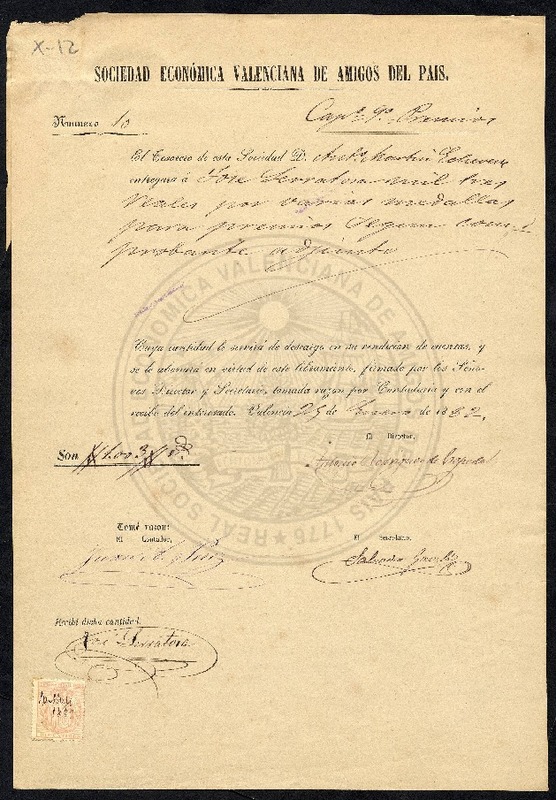 X-12
SOCIEDAD ECONÓMICA VALENCIANA DE AMIGOS DEL PAIS.
Numero 10
Cap.º 9.º Premios
El Tesorero de esta Sociedad D. Ant.º Martin
entregará á José Serratosa mil tres
reales por varias medallas
para premios segun com-
probante adjunto
Cuya cantidad le servirá de descargo en su rendicion de cuentas, y
se le abonará en virtud de este libramiento, firmado por los Seño-
res Director y Secretario, tomada razon por Contaduría y con el
recibo del interesado. Valencia 25 de Enero de 1882.
Son 1.003 r.
El Director,
Tomé razon:
El Contador,
El Secretario,
Juan A.
Salvador
Recibí dicha cantidad.
José Serratosa
REAL SOCIEDAD ECONOMICA VALENCIANA DE AMIGOS DEL PAIS 1776